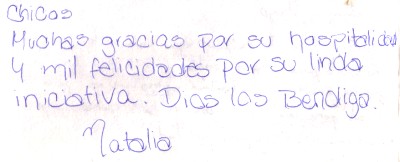 Chicos
Muchas gracias por su hospitalidad
y mil felicidades por su linda
iniciativa. Dios los Bendiga.
Natalia